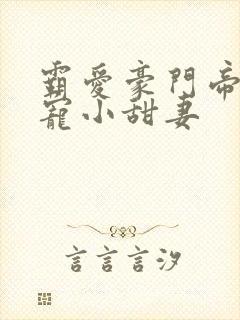 霸愛豪門帝
寵小甜妻
言言言汐